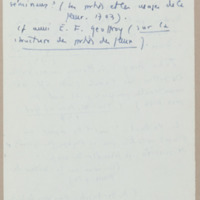 séminaux" (les parties et les usages de la
fleur. 1703).
cf aussi E. F. Geoffroy (sur la
structure des parties des fleurs).